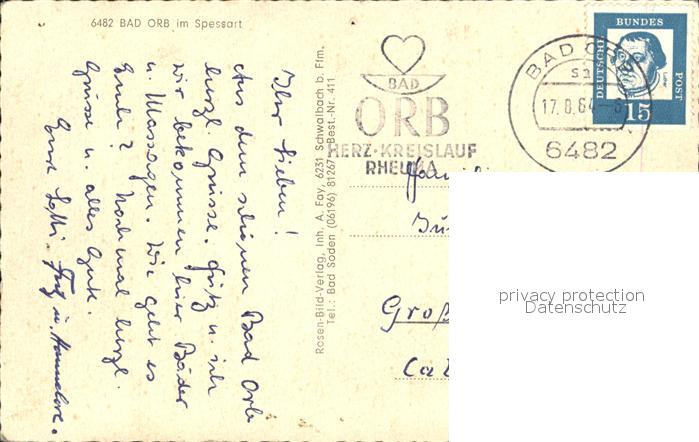 6482 BAD ORB im Spessart
Ihr Lieben!
Aus dem schönen Bad Orb
herzl. Grüsse. Fritz u. ich
wir bekommen hier Bäder
u. Massagen. Wie geht es
Euch? Nochmal herzl.
Grüsse u. alles Gute.
Eure Lotti, Fritz u. Hannelore.
Rosen-Bild-Verlag, Inh. A. Fay, 6231 Schwalbach b. Ffm.
Tel.: Bad Soden (06196) 81267 - Best.-Nr. 411
BAD
ORB
HERZ·KREISLAUF
RHEUMA
BAD ORB
17.8.64
6482
DEUTSCHE
BUNDES
POST
15
Groß
privacy protection
Datenschutz